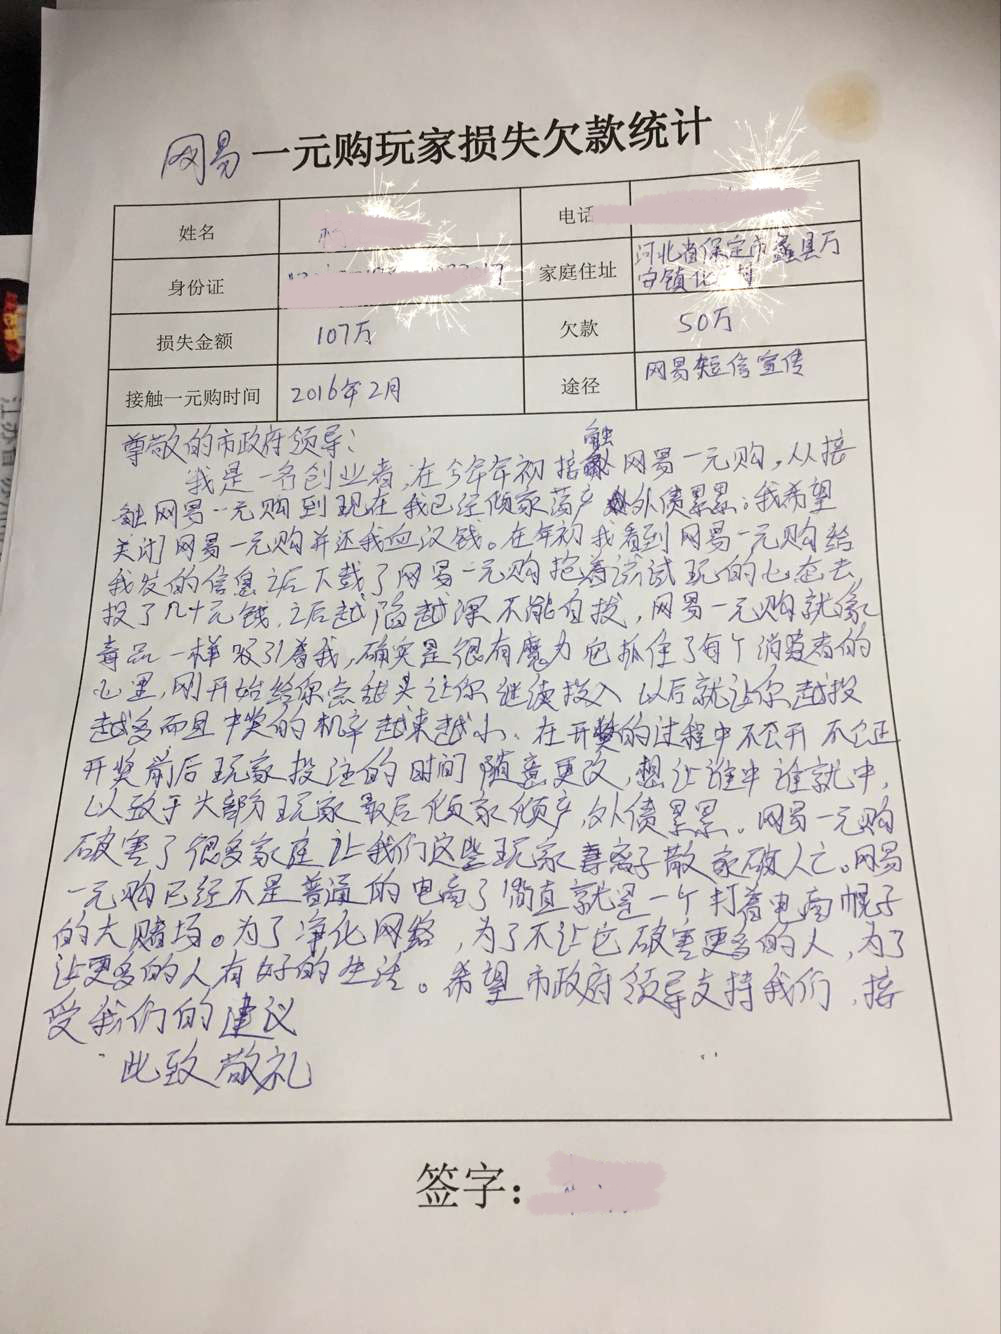 网易 一元购玩家损失欠款统计
姓名 电话
身份证 家庭住址 河北省保定市蠡县万
镇北
损失金额 107万 欠款 50万
接触一元购时间 2016年2月 途径 网易短信宣传
尊敬的市政府领导：
我是一名创业者，在今年年初接触网易一元购，从接
触网易一元购到现在我已经倾家荡产外债累累；我希望
关闭网易一元购并还我血汉钱。在年初我看到网易一元购给
我发的信息之后下载了网易一元购抱着试试玩的心态去
投了几十元钱，之后越陷越深不能自拔，网易一元购就像
毒品一样吸引着我，确实是很有魔力它抓住了每个消费者的
心里，刚开始给你点甜头让你继续投入以后就让你越投
越多而且中奖的机率越来越小、在开奖的过程中不公开不公正
开奖前后玩家投注的时间随意更改，想让谁中谁就中，
以致于大部分玩家最后倾家倾产，外债累累。网易一元购
破害了很多家庭让我们这些玩家妻离子散家破人亡。网易
一元购已经不是普通的电商了简直就是一个打着电商帽子
的大赌场。为了净化网络，为了不让它破害更多的人，为了
让更多的人有好的生活。希望市政府领导支持我们，接
受我们的建议
此致敬礼
签字：
江苏省